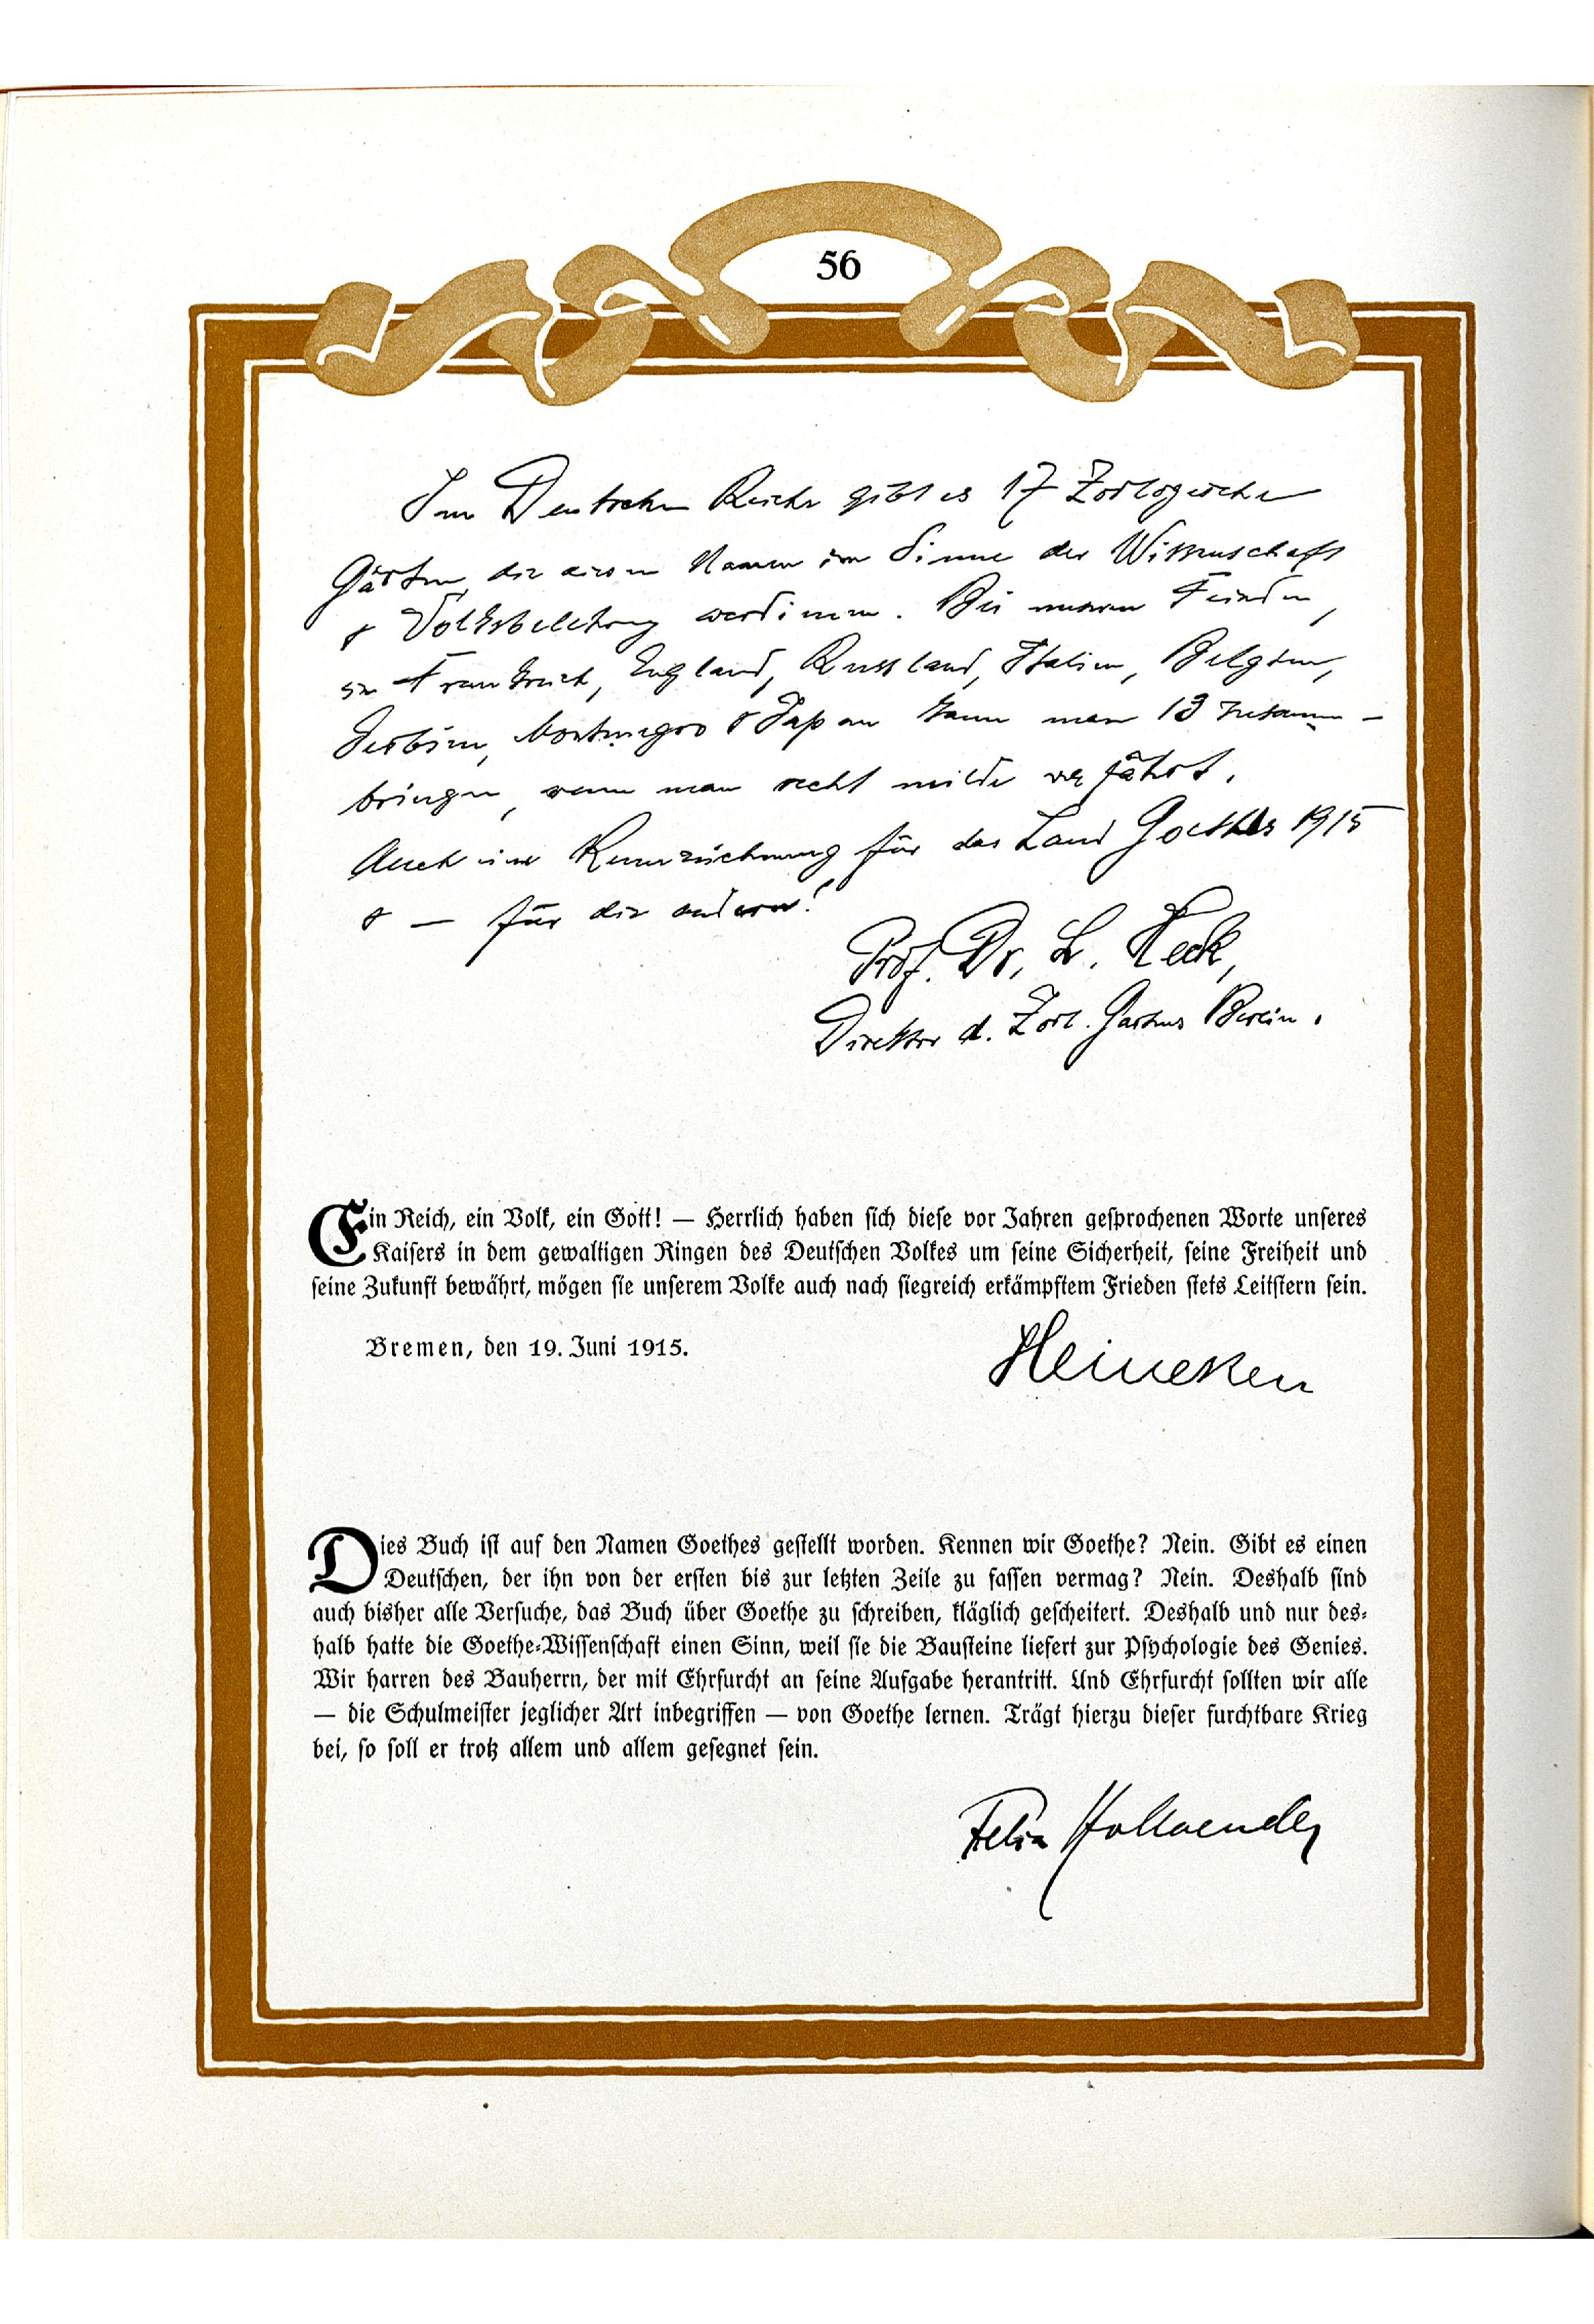 56
Im Deutschen Reiche gibt es 17 Zoologische
Gärten, die diesen Namen im Sinne der Wissenschaft
& Volksbelehrung verdienen. Bei unseren Feinden,
in Frankreich, England, Russland, Italien, Belgien,
Serbien, Montenegro & Japan kann man 13 zusammen-
bringen, wenn man recht milde verfährt.
Auch eine Kennzeichnung für das Land Goethes 1915
& — für die andern!
Prof. Dr. L. Heck,
Direktor d. Zool. Gartens Berlin.
Ein Reich, ein Volk, ein Gott! — Herrlich haben sich diese vor Jahren gesprochenen Worte unseres
Kaisers in dem gewaltigen Ringen des Deutschen Volkes um seine Sicherheit, seine Freiheit und
seine Zukunft bewährt, mögen sie unserem Volke auch nach siegreich erkämpftem Frieden stets Leitstern sein.
Bremen, den 19. Juni 1915.
Heineken
Dies Buch ist auf den Namen Goethes gestellt worden. Kennen wir Goethe? Nein. Gibt es einen
Deutschen, der ihn von der ersten bis zur letzten Zeile zu fassen vermag? Nein. Deshalb sind
auch bisher alle Versuche, das Buch über Goethe zu schreiben, kläglich gescheitert. Deshalb und nur des-
halb hatte die Goethe-Wissenschaft einen Sinn, weil sie die Bausteine liefert zur Psychologie des Genies.
Wir harren des Bauherrn, der mit Ehrfurcht an seine Aufgabe herantritt. Und Ehrfurcht sollten wir alle
— die Schulmeister jeglicher Art inbegriffen — von Goethe lernen. Trägt hierzu dieser furchtbare Krieg
bei, so soll er trotz allem und allem gesegnet sein.
Felix Hollaender